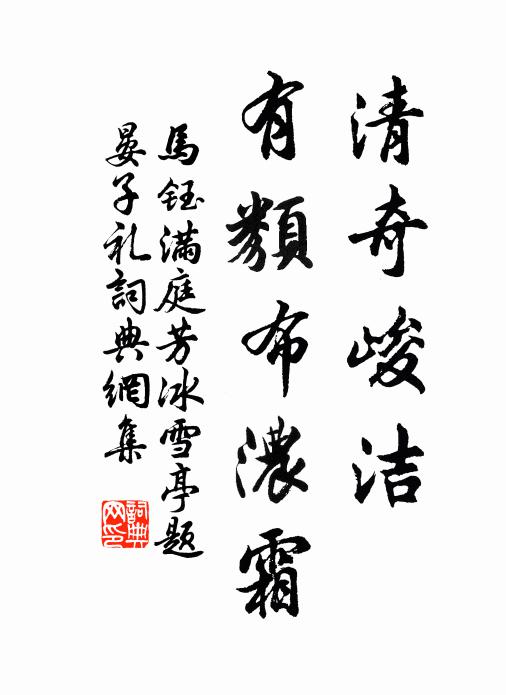 清奇峻洁
有類布濃霜
馬鈺滿庭芳冰雪亭題
晏子礼詞典網集
詞典網印